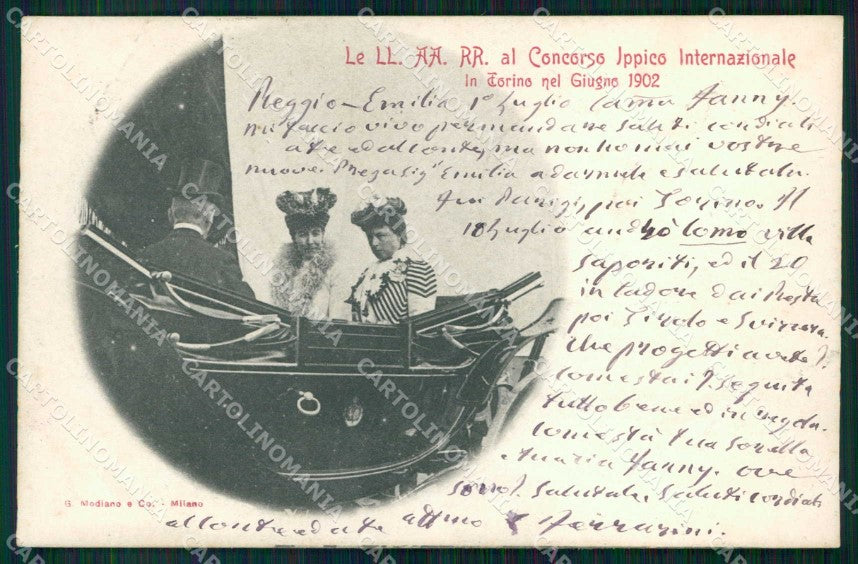 Le LL. AA. RR. al Concorso Ippico Internazionale
In Torino nel Giugno 1902
Reggio-Emilia 1º Luglio Cama Fanny.
mi faccio vivo per mandare saluti cordiali
a te ed al conte, ma non ho mai vostre
nuove. Emilia a darmele e salutala.
Fui Parigi, poi Torino. Il
18 Luglio andrò Como villa
Saporiti, ed il 20
in Cadore dai
poi Tirolo e Svizzera.
Che progetti avete?
Come stai? Seguita
tutto bene ed in regola.
Come stà tua sorella
Maria Fanny. ove
sono? Salutale. Saluti cordiali
al Conte ed a te affmo Ferrarini.
G. Modiano e Co. - Milano
CARTOLINOMANIA